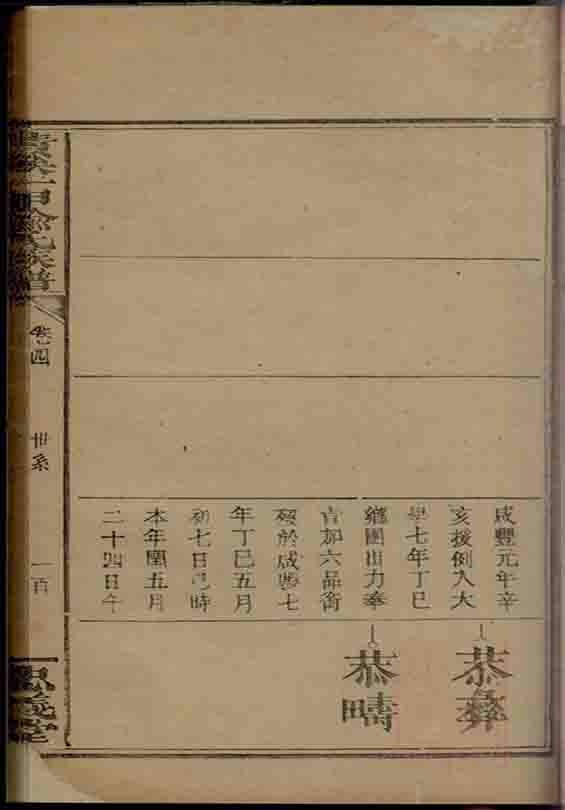 咸豐元年辛
亥援例入大
學七年丁巳
鄉團出力奉
旨加六品銜
歿於咸豐七
年丁巳五月
初七日巳時
本年閏五月
二十四日午
恭彝
恭疇
氏族譜
卷四
世系
一百